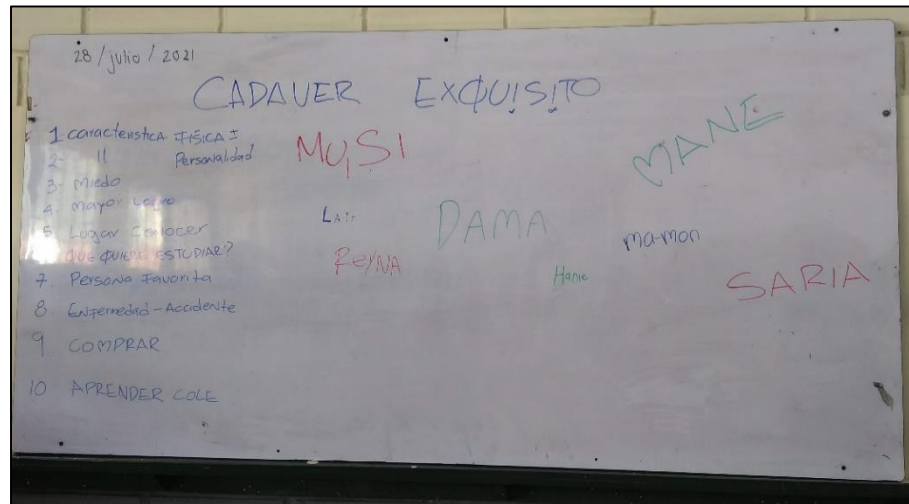 28 / julio / 2021
CADAVER EXQUISITO
1 Característica FÍSICA ±
2- 11 Personalidad
3- Miedo
4. Mayor Logro
5 Lugar Conocer
QUE QUIERO ESTUDIAR?
7. Persona Favorita
8 Enfermedad - Accidente
9 COMPRAR
10 APRENDER COLE
MUSI
MANE
LAir
DAMA
ma-mon
ReyNA
Hanie
SARIA